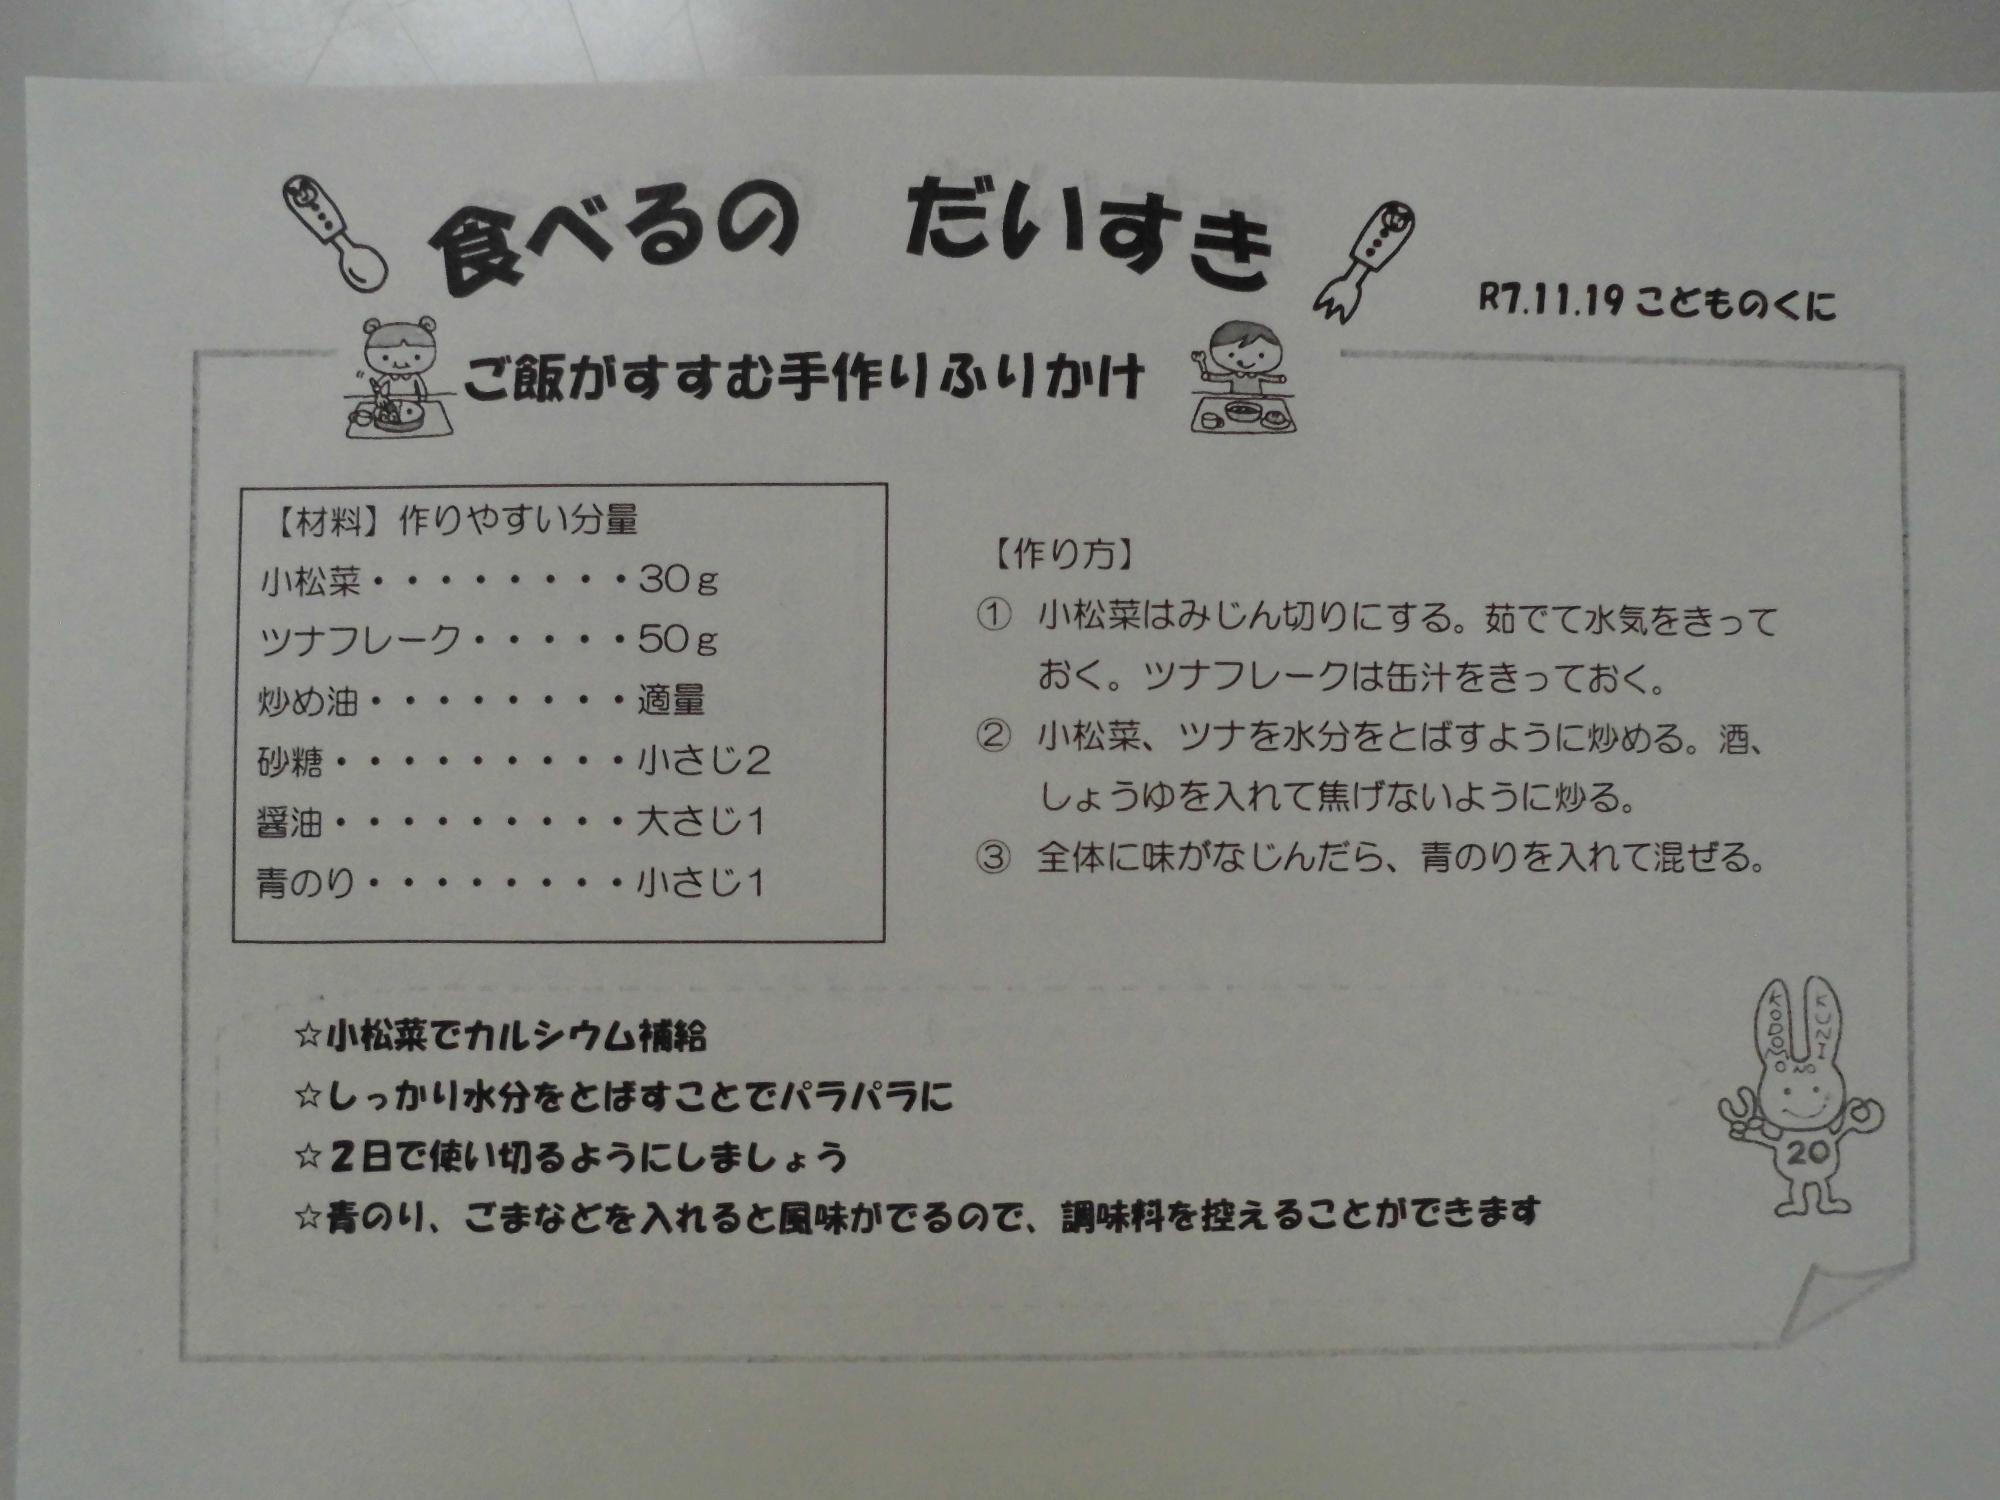 食べるの　だいすき
R7.11.19 こどものくに
ご飯がすすむ手作りふりかけ
【材料】作りやすい分量
小松菜・・・・・・・・30ｇ
ツナフレーク・・・・・50ｇ
炒め油・・・・・・・・適量
砂糖・・・・・・・・・小さじ２
醤油・・・・・・・・・大さじ１
青のり・・・・・・・・小さじ１
【作り方】
① 小松菜はみじん切りにする。茹でて水気をきって
おく。ツナフレークは缶汁をきっておく。
② 小松菜、ツナを水分をとばすように炒める。酒、
しょうゆを入れて焦げないように炒る。
③ 全体に味がなじんだら、青のりを入れて混ぜる。
☆小松菜でカルシウム補給
☆しっかり水分をとばすことでパラパラに
☆２日で使い切るようにしましょう
☆青のり、ごまなどを入れると風味がでるので、調味料を控えることができます
KODOMO
NO
KUNI
20